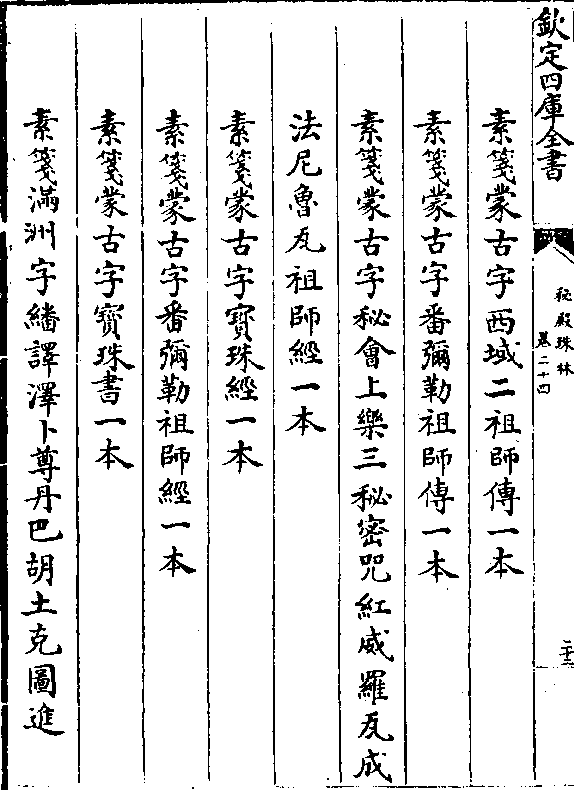 欽定四庫全書
秘殿珠林
卷二十四
二十三
素箋蒙古字西域二祖師傳一本
素箋蒙古字番彌勒祖師傳一本
素箋蒙古字秘會上樂三秘密咒紅威羅瓦成
法尼魯瓦祖師經一本
素箋蒙古字寳珠經一本
素箋蒙古字番彌勒祖師經一本
素箋蒙古字寳珠書一本
素箋滿洲字繙譯澤卜尊丹巴胡土克圖進